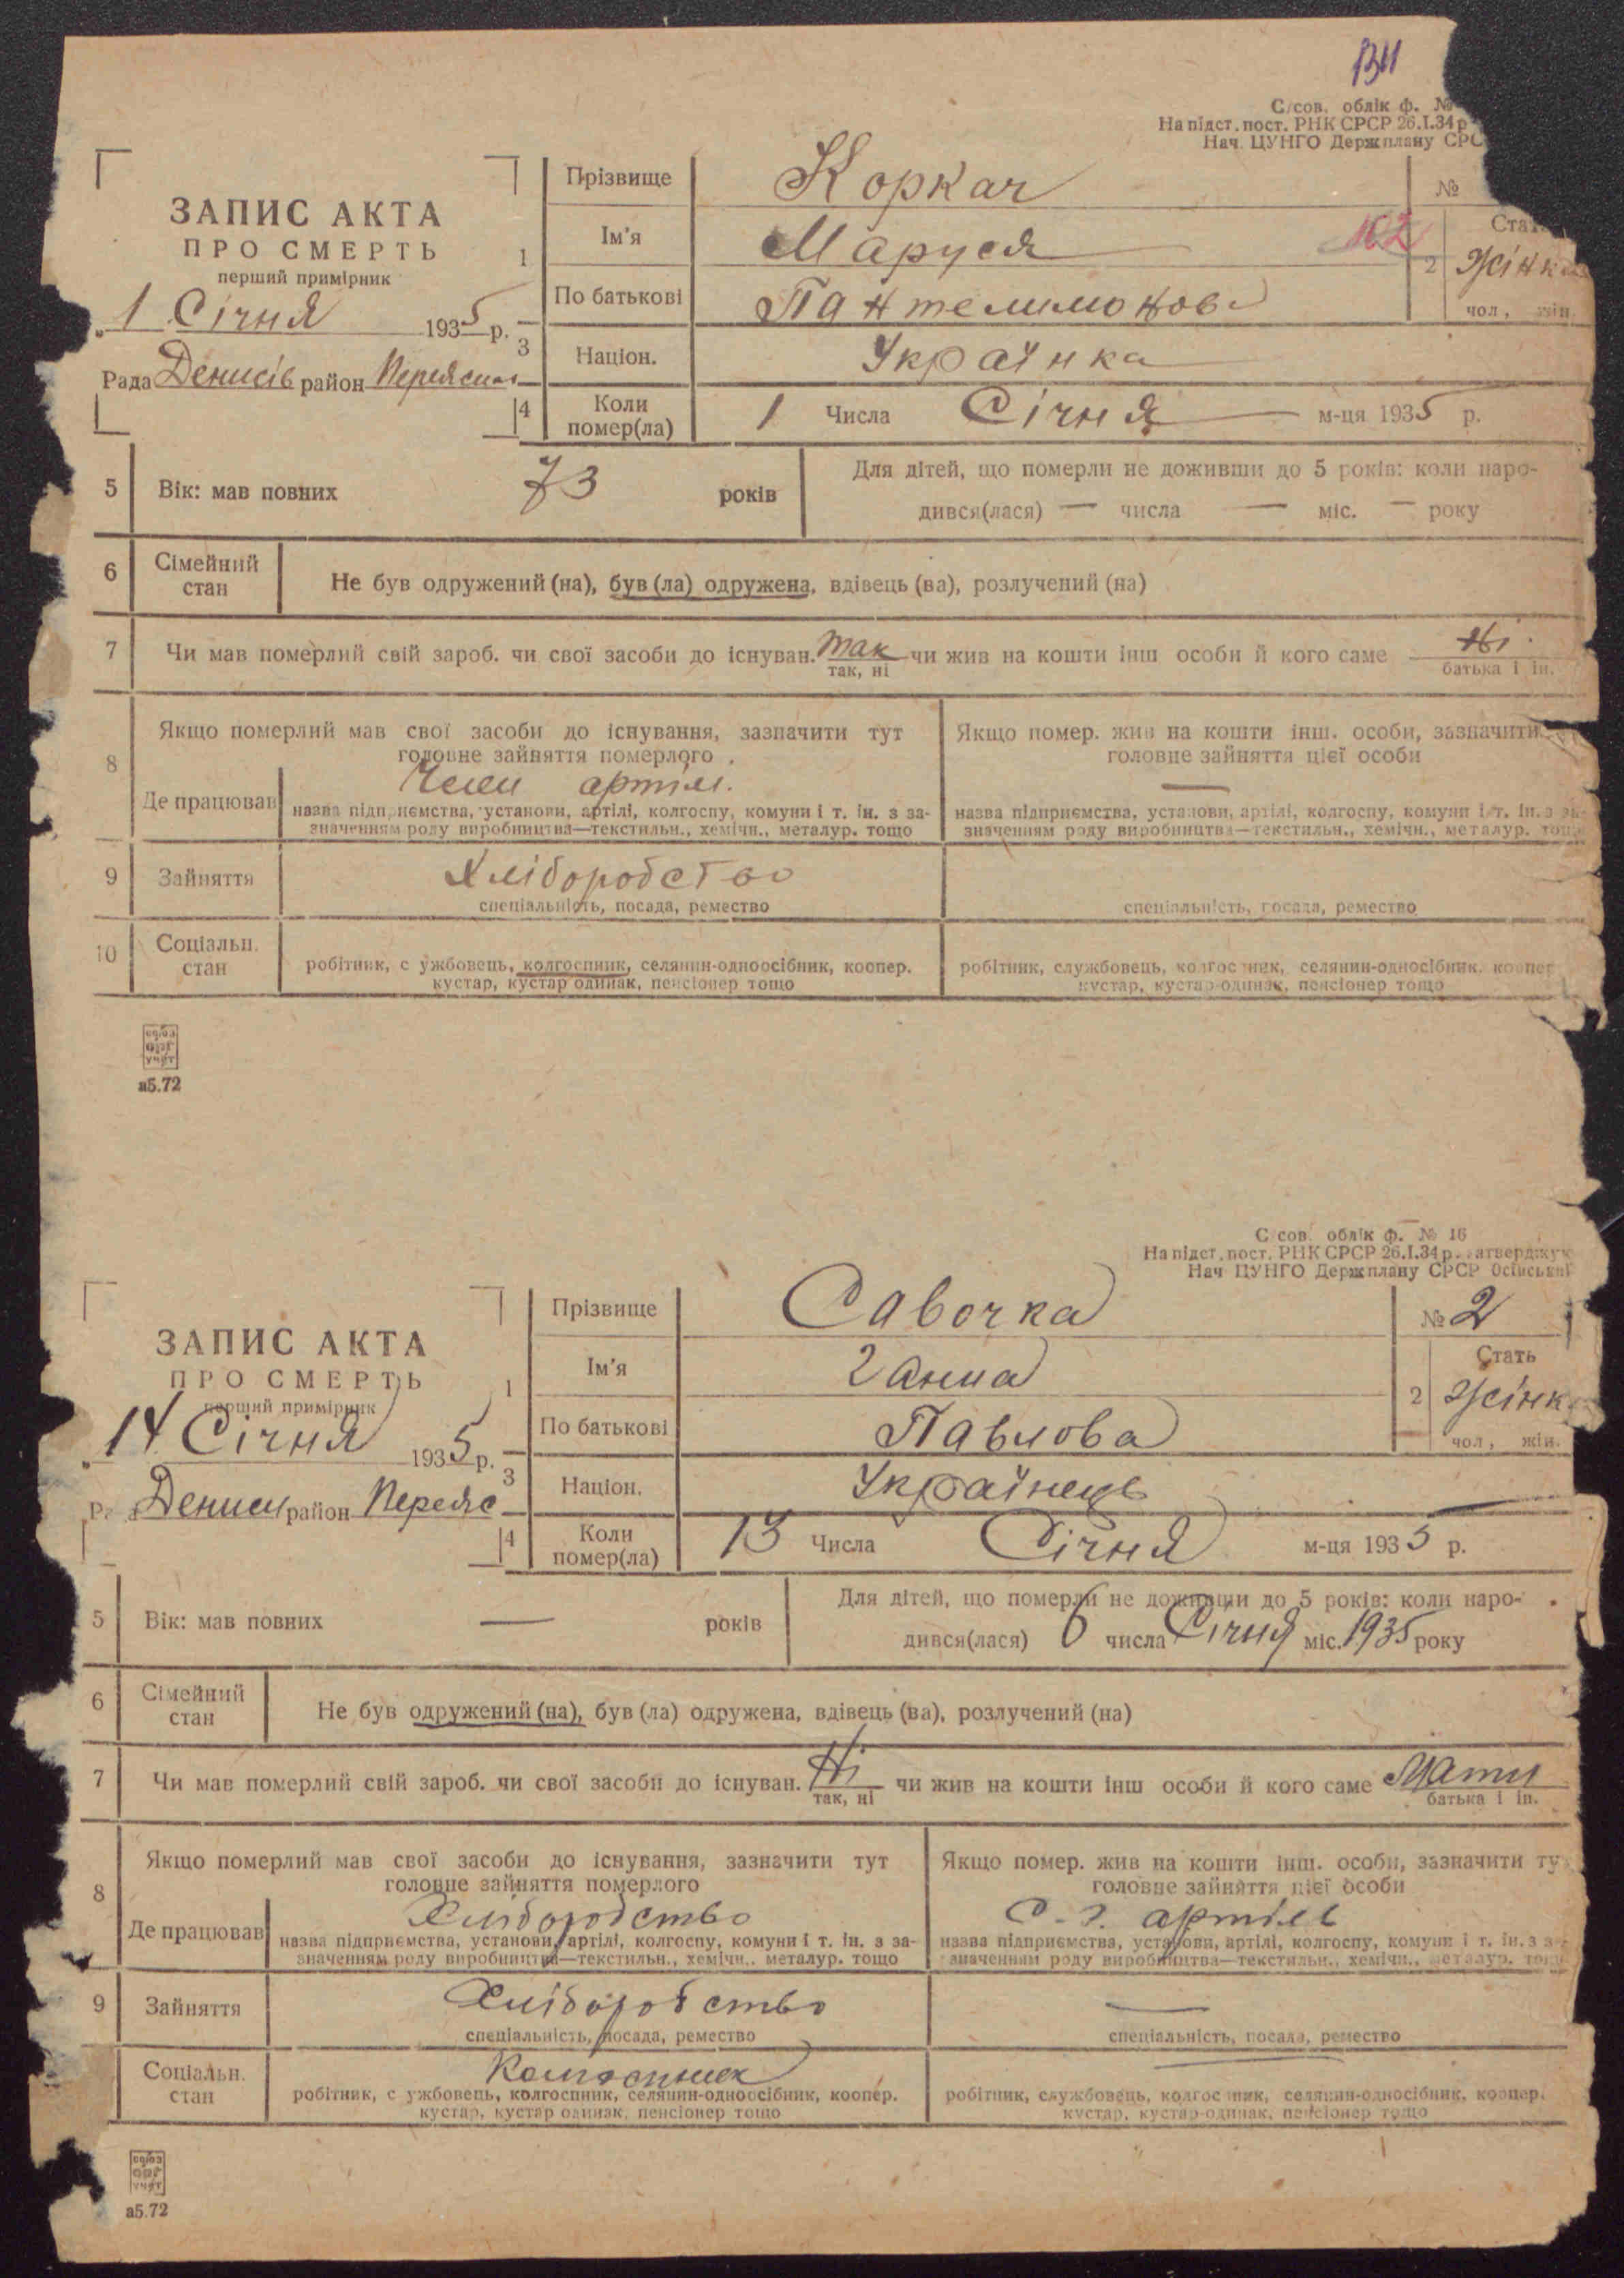 С/сов. облік ф. №
На підст. пост. РНК СРСР 26.І.34 р
Нач. ЦУНГО Держплану СРС
ЗАПИС АКТА
ПРО СМЕРТЬ
перший примірник
„1 Січня 1935 р.
Рада Денисів район
1 Прізвище Коркач №
Ім’я Маруся 102
По батькові Пантелимонова
2 Стать
Жінка
чол., жін.
3 Націон. Українка
4 Коли помер(ла) 1 Числа Січня м-ця 1935 р.
5 Вік: мав повних 73 років
Для дітей, що померли не доживши до 5 років: коли наро-
дився(лася) — числа — міс. — року
6 Сімейний стан Не був одружений (на), був (ла) одружена, вдівець (ва), розлучений (на)
7 Чи мав померлий свій зароб. чи свої засоби до існуван. так чи жив на кошти інш особи й кого саме Ні
так, ні батька і ін.
8 Якщо померлий мав свої засоби до існування, зазначити тут
головне зайняття померлого
Де працював Член артіл.
назва підприємства, установи, артілі, колгоспу, комуни і т. ін. з за-
значенням роду виробництва—текстильн., хемічн., металур. тощо
Якщо помер. жив на кошти інш. особи, зазначити
головне зайняття цієї особи
—
назва підприємства, установи, артілі, колгоспу, комуни і т. ін. з за-
значенням роду виробництва—текстильн., хемічн., металур. тощо
9 Зайняття Хліборобство
спеціальність, посада, ремество
спеціальність, посада, ремество
10 Соціальн. стан робітник, с ужбовець, колгоспник, селянин-одноосібник, коопер.
кустар, кустар одинак, пенсіонер тощо
робітник, службовець, колгос ник, селянин-односібник, коопер
кустар, кустар-одинак, пенсіонер тощо
союз
орг
учет
а5.72
С сов. облік ф. № 16
На підст. пост. РНК СРСР 26.І.34 р. затверджую
Нач ЦУНГО Держплану СРСР Осінський
ЗАПИС АКТА
ПРО СМЕРТЬ
перший примірник
„14 Січня 1935 р.
район Переяс
1 Прізвище Савочка № 2
Ім’я Ганна
По батькові Павлова
2 Стать
Жінк
чол., жін.
3 Націон. Українець
4 Коли помер(ла) 13 Числа Січня м-ця 1935 р.
5 Вік: мав повних — років
Для дітей, що померли не доживши до 5 років: коли наро-
дився(лася) 6 числа Січня міс. 1935 року
6 Сімейний стан Не був одружений (на), був (ла) одружена, вдівець (ва), розлучений (на)
7 Чи мав померлий свій зароб. чи свої засоби до існуван. Ні чи жив на кошти інш особи й кого саме Мати
так, ні батька і ін.
8 Якщо померлий мав свої засоби до існування, зазначити тут
головне зайняття померлого
Де працював Хліборобство
назва підприємства, установи, артілі, колгоспу, комуни і т. ін. з за-
значенням роду виробництва—текстильн., хемічн., металур. тощо
Якщо помер. жив на кошти інш. особи, зазначити ту
головне зайняття цієї особи
С.-г. артіль
назва підприємства, установи, артілі, колгоспу, комуни і т. ін. з за-
значенням роду виробництва—текстильн., хемічн., металур. тощо
9 Зайняття Хліборобство
спеціальність, посада, ремество
—
спеціальність, посада, ремество
Соціальн. стан Колгоспник
робітник, с ужбовець, колгоспник, селянин-одноосібник, коопер.
кустар, кустар одинак, пенсіонер тощо
робітник, службовець, колгос ник, селянин-односібник, коопер.
кустар, кустар-одинак, пенсіонер тощо
союз
орг
учет
а5.72